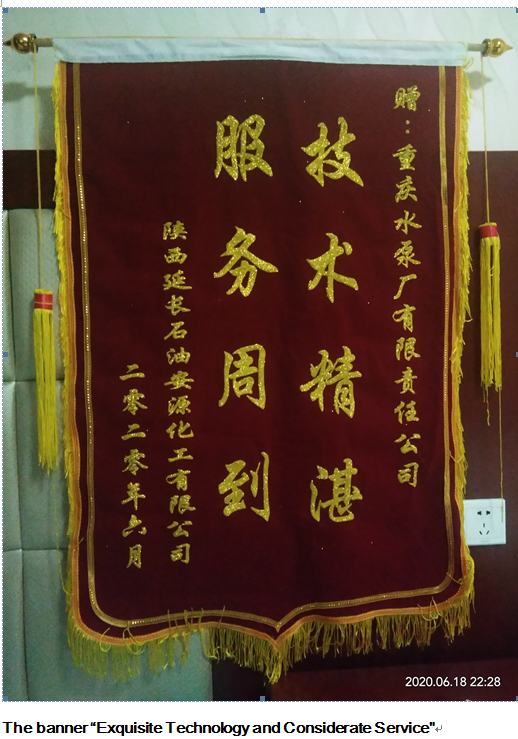 赠：重庆水泵厂有限责任公司
技术精湛
服务周到
陕西延长石油安源化工有限公司
二零二零年六月
2020.06.18 22:28
The banner “Exquisite Technology and Considerate Service"